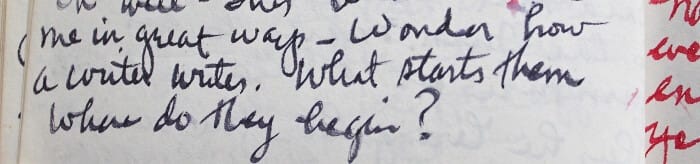 me in great ways - Wonder how
a writer writes. What starts them
Where do they begin?